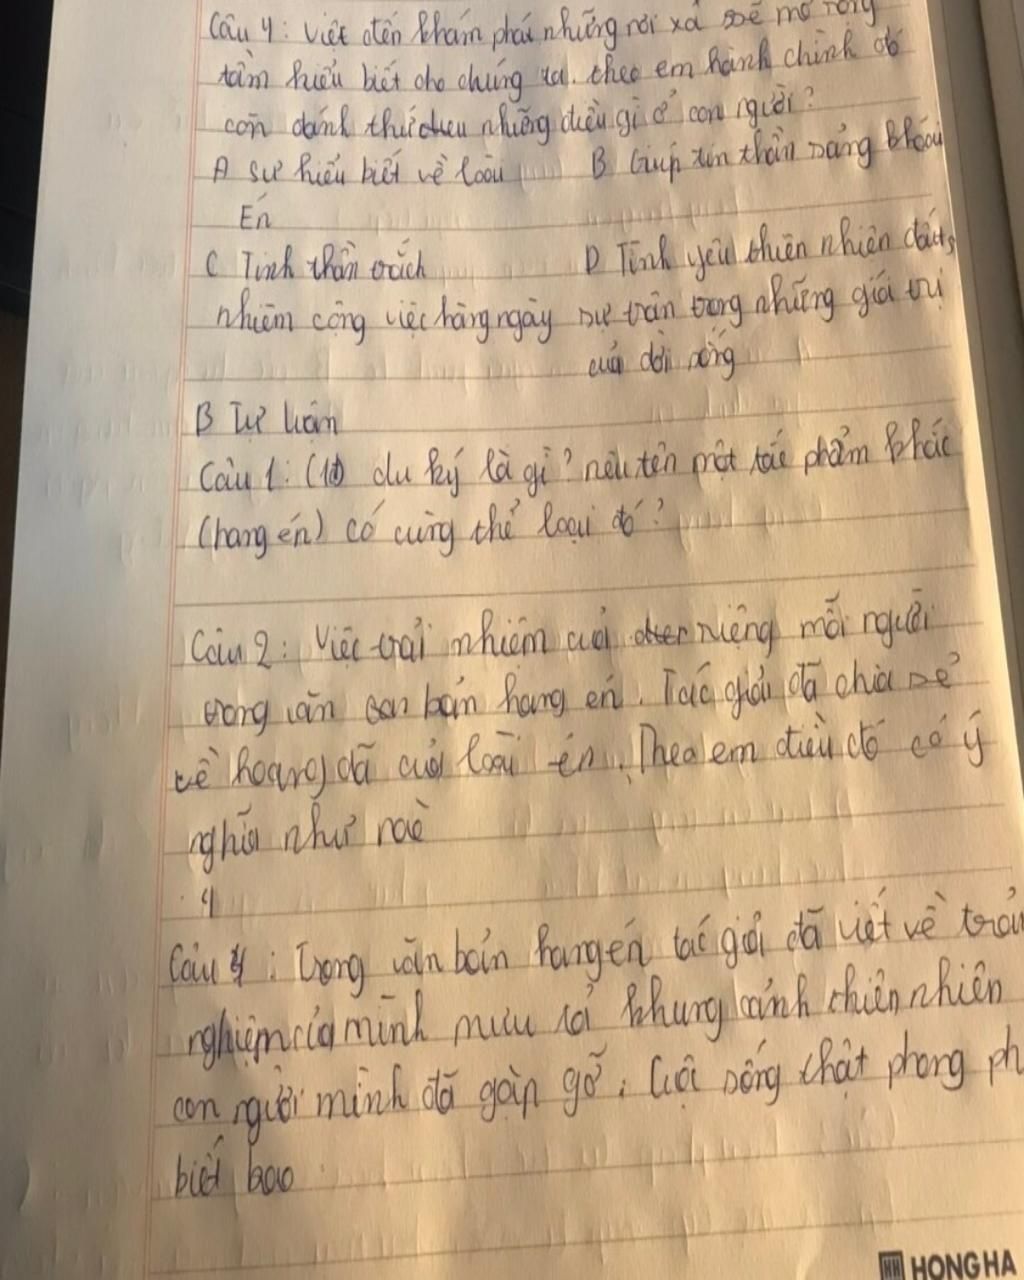 Câu 4: Việc đến khám phá những nơi xa sẽ mở rộng
tầm hiểu biết cho chúng ta. theo em hành chính đó
còn đánh thức những điều gì ở con người?
A sự hiểu biết về loài B Giúp tin thần sảng khoái
Én
C Tinh thần trách D Tình yêu thiên nhiên
nhiêm công việc hàng ngày sự trân trọng những giá trị
của đời sống
B Tự luân
Câu 1: (1đ) du ký là gì? nêu tên một tác phẩm khác
(hang én) có cùng thể loại đó?
Câu 2: Việc trải nhiêm của riêng mỗi người
trong văn ban bản hang én. Tác giả đã chia sẻ
về hoang dã của loài én. Theo em điều đó có ý
nghĩa như
4
Câu 4: Trong văn bản hang én tác giả đã viết về trải
nghiệm của mình miêu tả khung cảnh thiên nhiên
con người mình đã gặp gỡ. Cuộc sống thật phong ph
biết bao
HH HONG HA